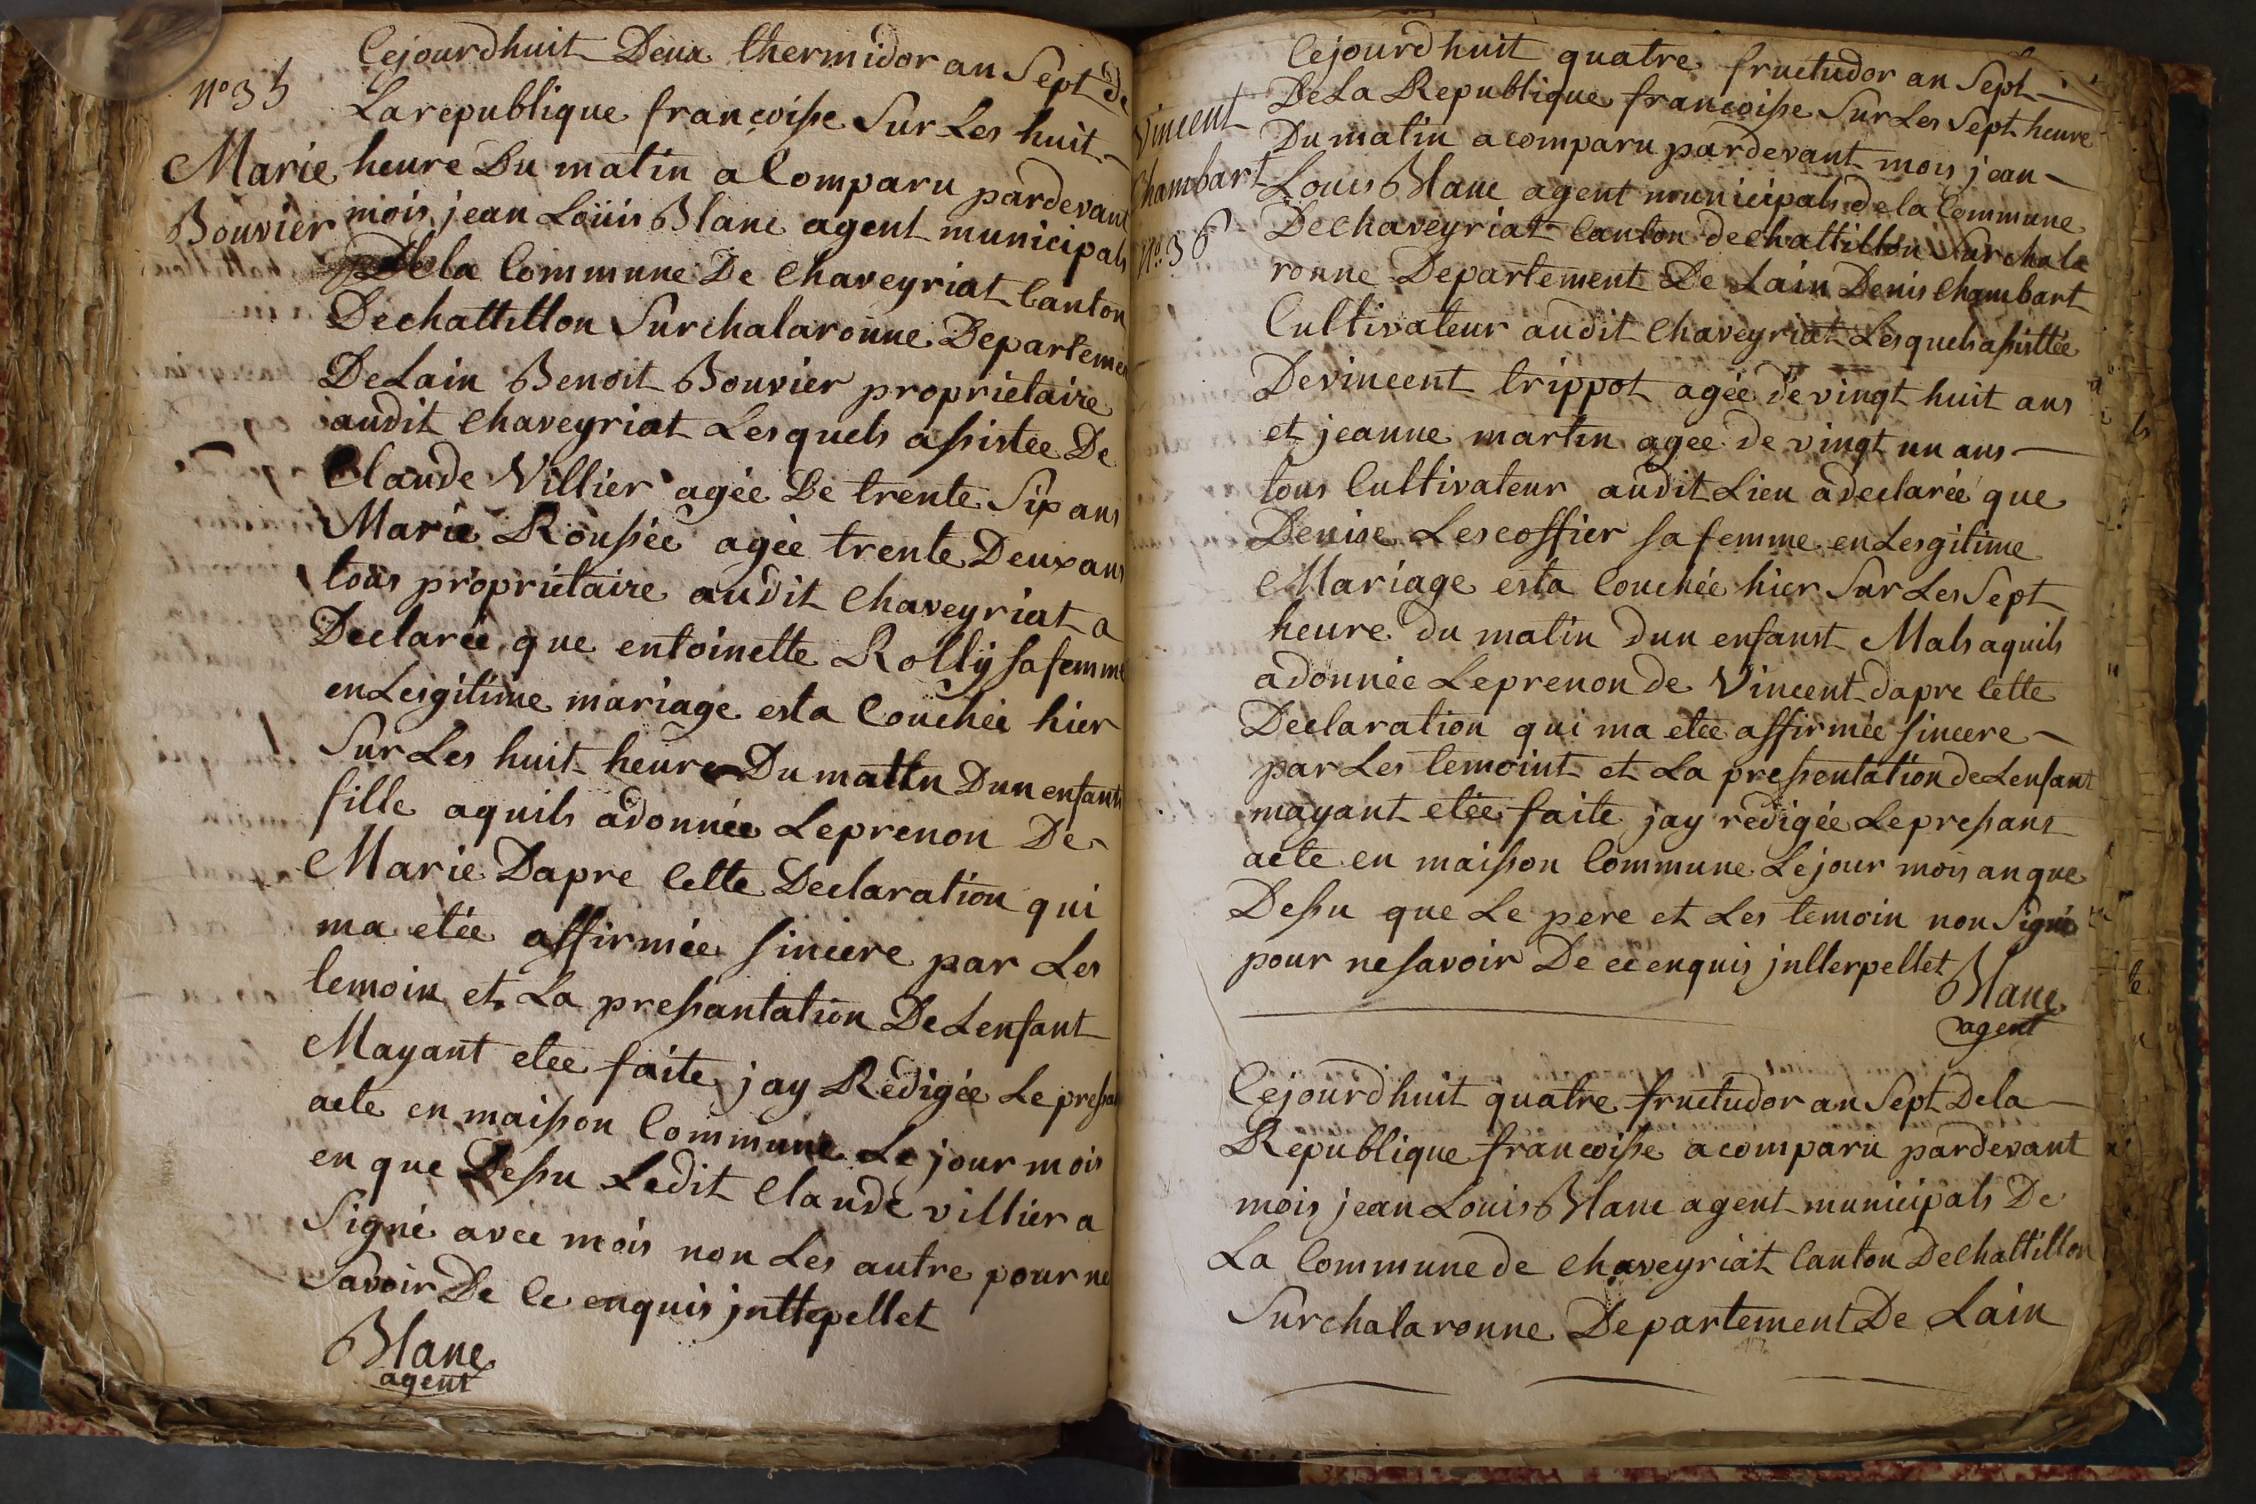 n.o 35
Marie
Bouvier
Cejourdhuit Deux thermidor an Sept de
La republique francoisse Sur Les huit
heure Du matin a Comparu pardevant
mois jean Loüis Blanc agent municipals
De la Commune De Chaveyriat Canton
De chattillon Sur chalaronne Departeme
De Lain Benoit Bouvier proprietaire
audit Chaveyriat Lesquels assistée De
Claude Villier agée De trente Six ans
Marie Roussée agée trente Deux ans
tous proprietaire audit Chaveyriat a
Declarée que entoinette Rollÿ sa femme
en Lesgitime mariage esta Couchée hier
Sur Les huit heure Du mattn Dun enfants
fille aquils adonnée Leprenon De
Marie Dapre Cette Declaration qui
ma etée affirmée sincere par Les
temoin et La pressantation De Lenfant
Mayant etée faite jay Redigée Le pressa
acte en maisson Commune Le jour mois
en que Dessu Ledit Claude villier a
Signé avec mois non Les autre pour ne
Savoir De Ce enquis jnttepellet
Blanc
agent
Vincent
Chambart
n.o 36
Cejourdhuit quatre fructudor an Sept
De La Republique francoisse Sur Les Sept heure
Du matin a comparu pardevant mois jean
Louis Blanc agent municipals de la Commune
De chaveyriat Canton de chattillon Sur chala
ronne Departement De Lain Denis Chambart
Cultivateur audit Chaveyriat Lesquels assittée
De vincent trippot agée de vingt huit ans
et jeanne martin agee de vingt un ans
tous Cultivateur audit Lieu a declarée que
Denise Lescoffier sa femme en Lesgitime
Mariage esta Couchée hier Sur Les Sept
heure du matin dun enfanst Mals aquils
adonnée Leprenon de Vincent dapre Cette
Declaration qui ma etée affirmée sincere
par Les temoint et La pressentation de Lenfant
mayant etée faite jay redigée Le pressant
acte en maisson Commune Le jour mois an que
Dessu que Le pere et Les temoin non Signé
pour ne savoir De ce enquis jntterpellet
Blanc
agent
Cejourdhuit quatre fructudor an Sept De la
Republique francoisse a comparu pardevant
mois jean Louis Blanc agent municipals De
La Commune de Chaveyriat Canton De Chattillon
Sur chalaronne Departement De Lain